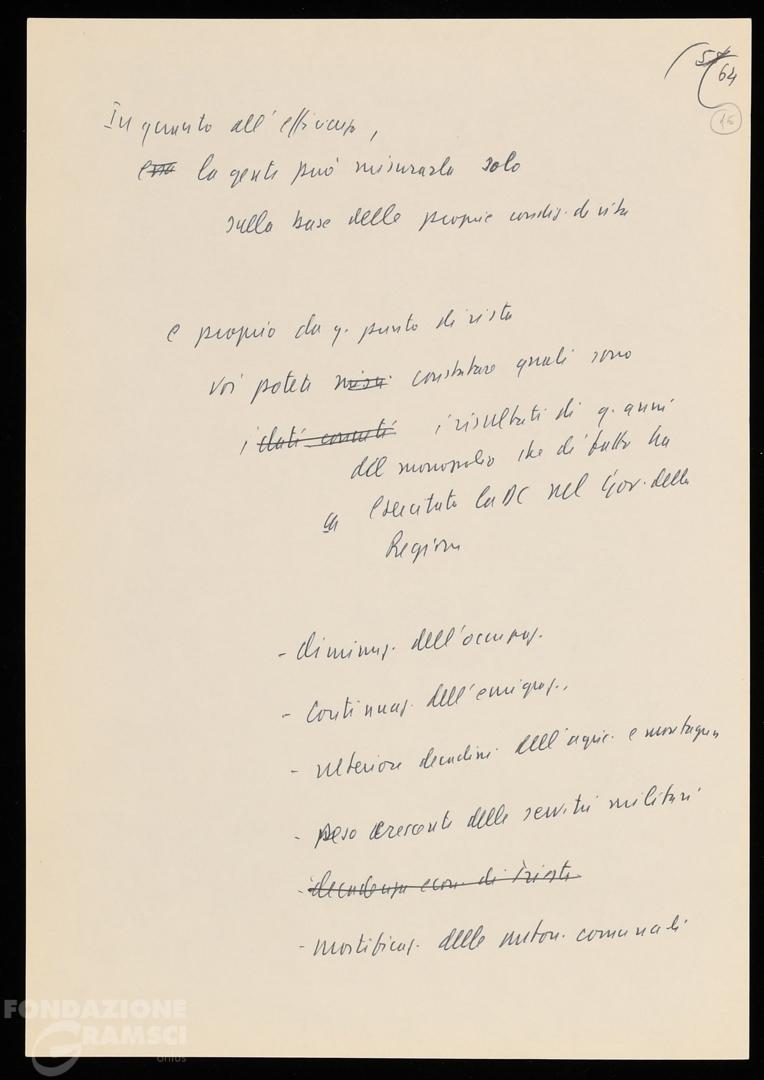 58
64
15
In quanto all'efficienza,
essa la gente può misurarla solo
sulla base delle proprie condiz. di vita
e proprio da q. punto di vista
voi potete misu. constatare quali sono
i dati concreti i risultati di q. anni
del monopolio che di fatto ha
esercitato la DC nel Gov. della
Regione
- diminuz. dell'occupaz.
- continuaz. dell'emigraz.,
- ulteriore decadim. dell'agric. e montagna
- peso crescente delle servitù militari
- decadenza econ. di Trieste
- mortificaz. delle auton. comunali
FONDAZIONE
GRAMSCI
onlus